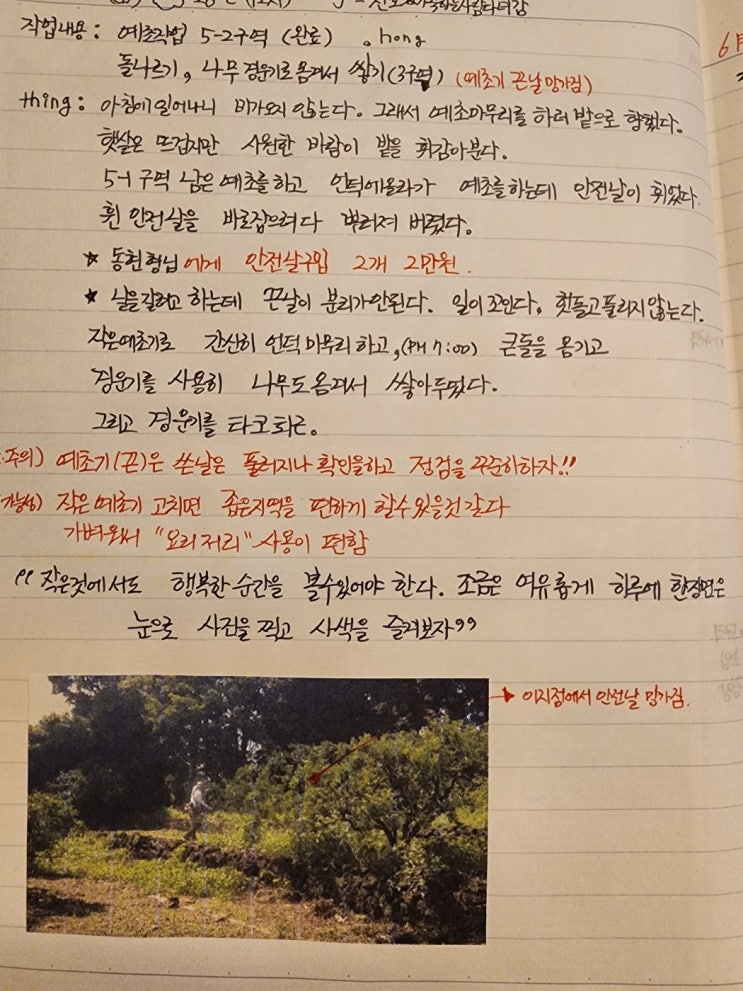 작업내용: 예초작업 5-2구역 (완료) . hong
돌나르기, 나무 경운기로 옮겨서 쌓기(3구역) (예초기 끈날 망가짐)
thing: 아침에 일어나니 비가오지 않는다. 그래서 예초마무리를 하러 밭으로 향했다.
햇살은 뜨겁지만 시원한 바람이 밭을 휘감아분다.
5-1 구역 남은 예초를 하고 언덕에올라가 예초를하는데 안전날이 휘었다.
휜 안전날을 바로잡으려다 뿌러져 버렸다.
★ 동현형님에게 안전날구입 2개 2만원.
★ 날을갈려고 하는데 끈날이 분리가안된다. 일이 꼬인다, 힛들고 풀리지않는다.
작은예초기로 간신히 언덕 마무리 하고, (PM 7:00) 큰돌을 옮기고
경운기를 사용히 나무도옮겨서 쌓아두었다.
그리고 경운기를 타고 퇴근.
주의) 예초기(끈)은 쓴날은 풀러지나 확인을하고 정검을 꾸준히하자!!
가능성) 작은 예초기 고치면 좁은지역을 편하게 할수있을것 같다
가벼워서 "요리저리" 사용이 편함
"작은것에서도 행복한 순간을 볼수있어야 한다. 조금은 여유롭게 하루에 한장면은
눈으로 사진을 찍고 사색을 즐겨보자"
이지점에서 안전날 망가짐.
6月